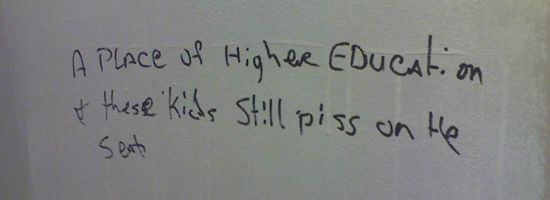 A PLACE of Higher EDUCATion
& these kids Still piss on the
Seat